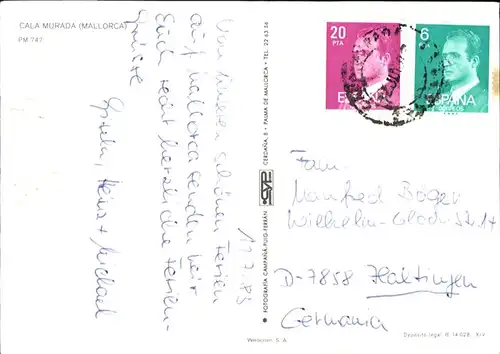 CALA MURADA (MALLORCA)
PM 747
17.7.83
Von unseren schönen Ferien
auf Mallorca senden wir
Euch recht herzliche Ferien-
grüsse
Heinz + Michael
FOTOGRAFIA CAMPAÑA-PUIG-FERRÁN
CERDAÑA, 8 - PALMA DE MALLORCA - TEL. 22 63 56
20
PTA
ESPAÑA
6
ESPAÑA
CORREOS
Fam.
Manfred Böger
Wilhelm-Glock-Str. 14
D-7858 Haltingen
Germania
Depósito legal B. 14.028 - XIV